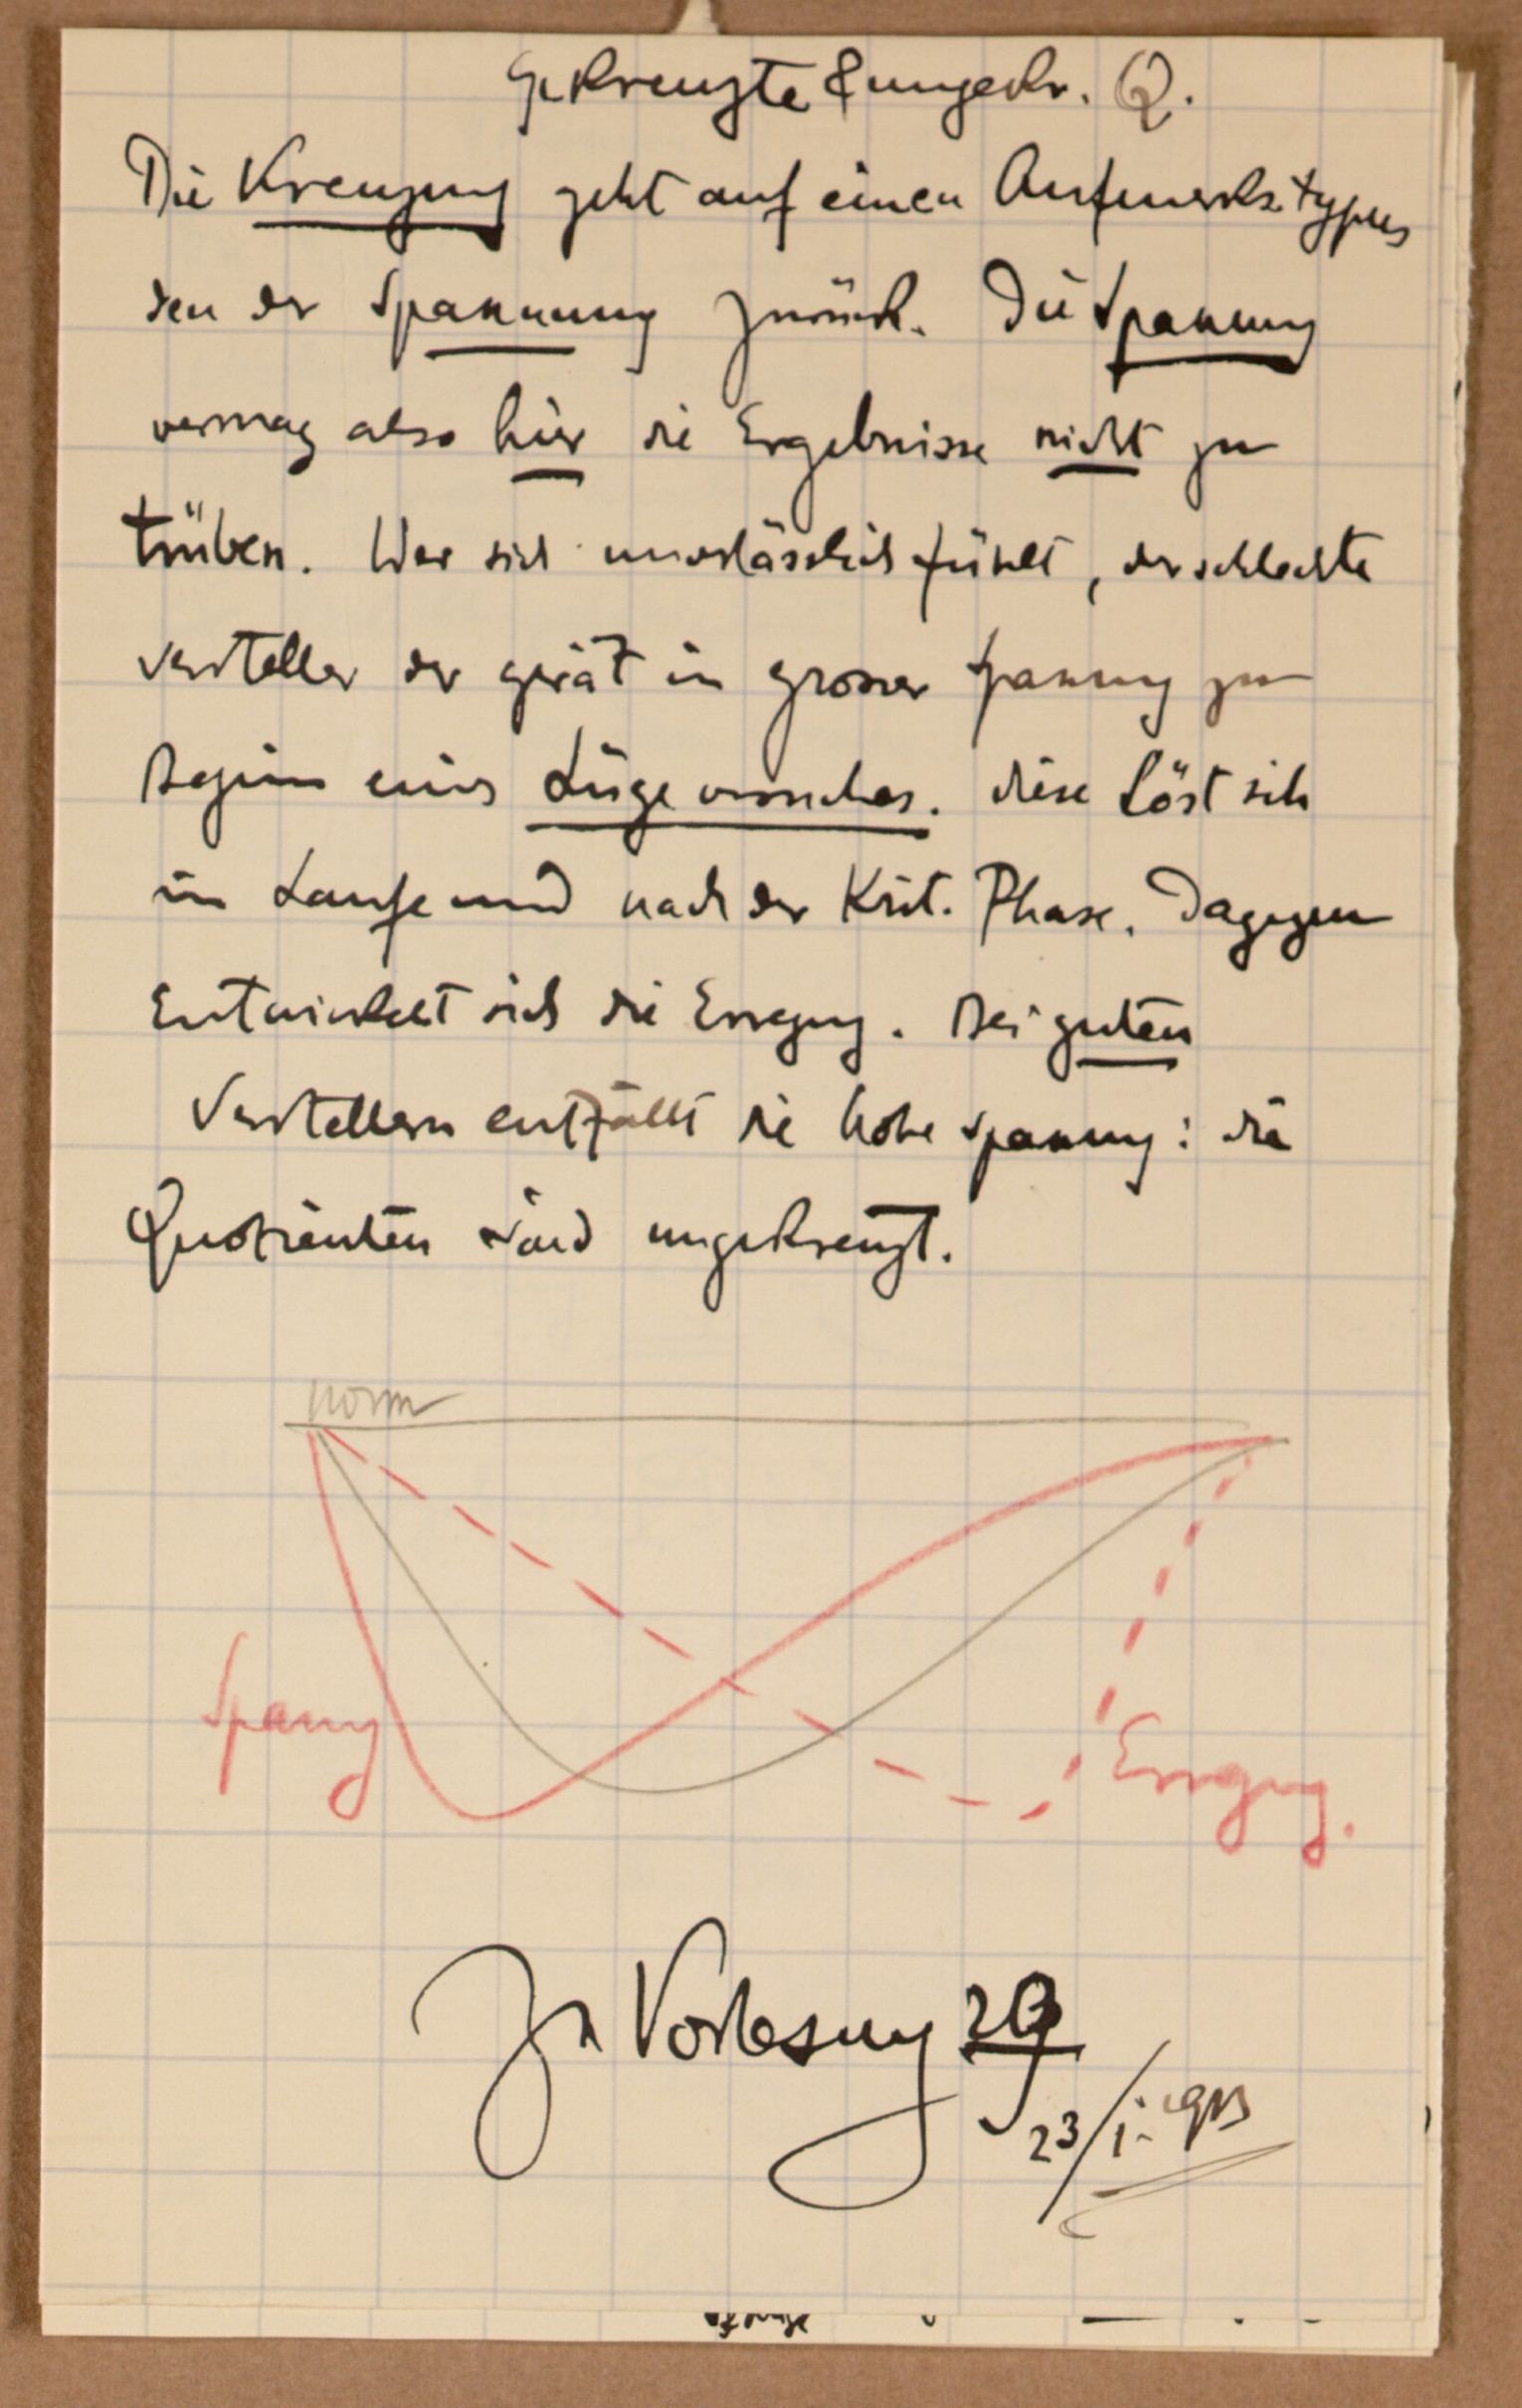 Gekreuzte & ungekr. Q.
Die Kreuzung geht auf einen Aufmerks.typus
den der Spannung zurück. Die Spannung
vermag also hier die Ergebnisse nicht zu
trüben. Wer sich unverlässlich fühlt, der schlechte
Versteller der gerät in grosser Spannung zu
Beginn eines Lügeversuches. Diese löst sich
im Laufe und nach der Krit. Phase. Dagegen
Entwickelt sich die Erregung. Bei guten
Verstellern entfällt die hohe Spannung: die
Quotienten sind ungekreuzt.
norm
Spannung
Erregung.
Zu Vorlesung
23/I.